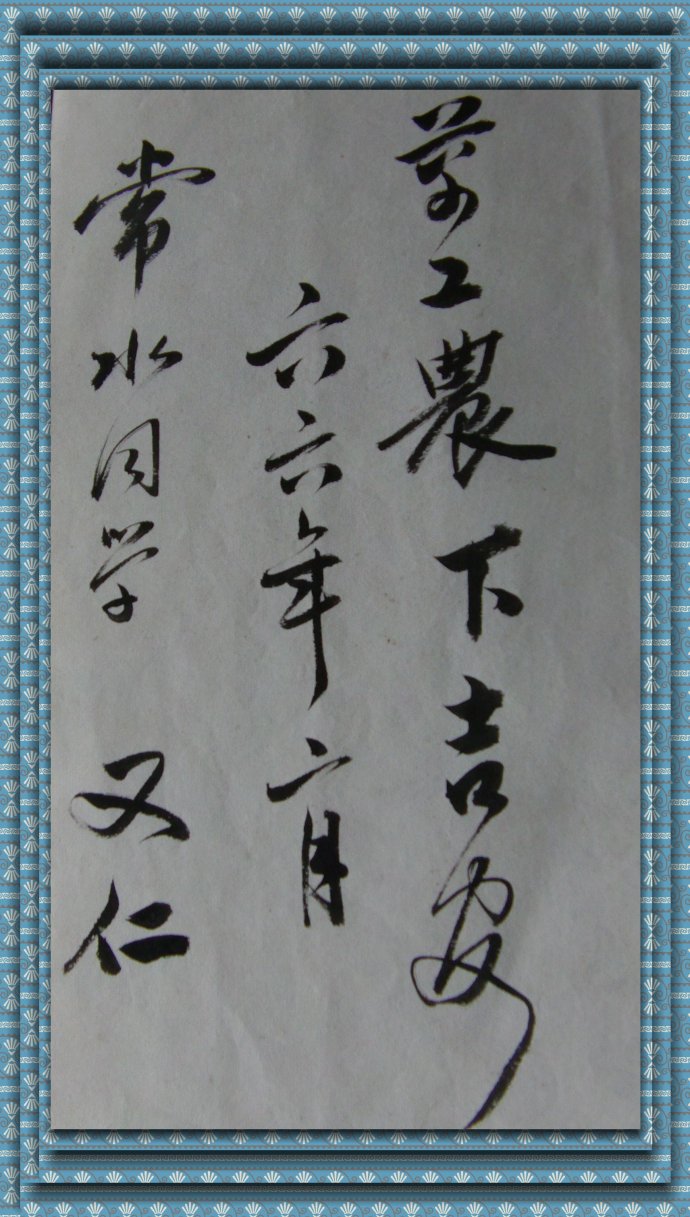 十万工農下吉安
六六年六月
常水同学 又仁